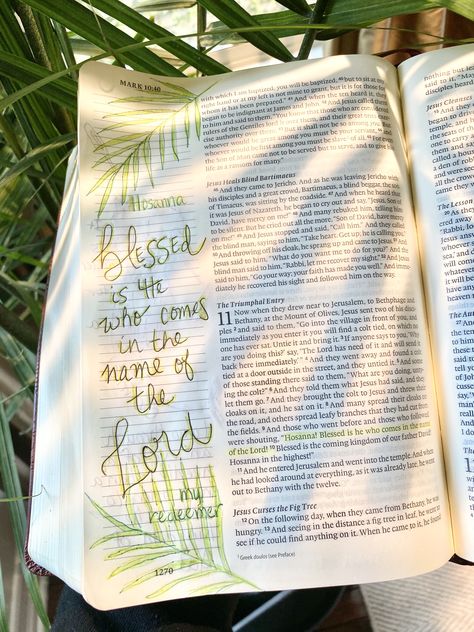 MARK 10:40
Hosanna
Blessed
is He
who comes
in the
name of
the
Lord
my
redeemer
1270
with which I am baptized, you will be baptized, 40 but to sit at my
right hand or at my left is not mine to grant, but it is for those for
whom it has been prepared." 41 And when the ten heard it, they
began to be indignant at James and John. 42 And Jesus called them
to him and said to them, "You know that those who are considered
rulers of the Gentiles lord it over them, and their great ones exer-
cise authority over them. 43 But it shall not be so among you. But
whoever would be great among you must be your servant, 44 and
whoever would be first among you must be slave of all. 45 For even
the Son of Man came not to be served but to serve, and to give his
life as a ransom for many."
Jesus Heals Blind Bartimaeus
46 And they came to Jericho. And as he was leaving Jericho with
his disciples and a great crowd, Bartimaeus, a blind beggar, the son
of Timaeus, was sitting by the roadside. 47 And when he heard that
it was Jesus of Nazareth, he began to cry out and say, "Jesus, Son of
David, have mercy on me!" 48 And many rebuked him, telling him
to be silent. But he cried out all the more, "Son of David, have mercy
on me!" 49 And Jesus stopped and said, "Call him." And they called
the blind man, saying to him, "Take heart. Get up; he is calling you."
50 And throwing off his cloak, he sprang up and came to Jesus. 51 And
Jesus said to him, "What do you want me to do for you?" And the
blind man said to him, "Rabbi, let me recover my sight." 52 And Jesus
said to him, "Go your way; your faith has made you well." And imme-
diately he recovered his sight and followed him on the way.
The Triumphal Entry
11 Now when they drew near to Jerusalem, to Bethphage and
Bethany, at the Mount of Olives, Jesus sent two of his disci-
ples 2 and said to them, "Go into the village in front of you, and
immediately as you enter it you will find a colt tied, on which no
one has ever sat. Untie it and bring it. 3 If anyone says to you, 'Why
are you doing this?' say, 'The Lord has need of it and will send it
back here immediately.'" 4 And they went away and found a colt
tied at a door outside in the street, and they untied it. 5 And some
of those standing there said to them, "What are you doing, unty-
ing the colt?" 6 And they told them what Jesus had said, and they
let them go. 7 And they brought the colt to Jesus and threw their
cloaks on it, and he sat on it. 8 And many spread their cloaks on
the road, and others spread leafy branches that they had cut from
the fields. 9 And those who went before and those who followed
were shouting, "Hosanna! Blessed is he who comes in the name
of the Lord! 10 Blessed is the coming kingdom of our father David!
Hosanna in the highest!"
11 And he entered Jerusalem and went into the temple. And when
he had looked around at everything, as it was already late, he went
out to Bethany with the twelve.
Jesus Curses the Fig Tree
12 On the following day, when they came from Bethany, he was
hungry. 13 And seeing in the distance a fig tree in leaf, he went to
see if he could find anything on it. When he came to it, he found
1 Greek doulos (see Preface)
nothing but
Jesus Cleanses
The Lesson